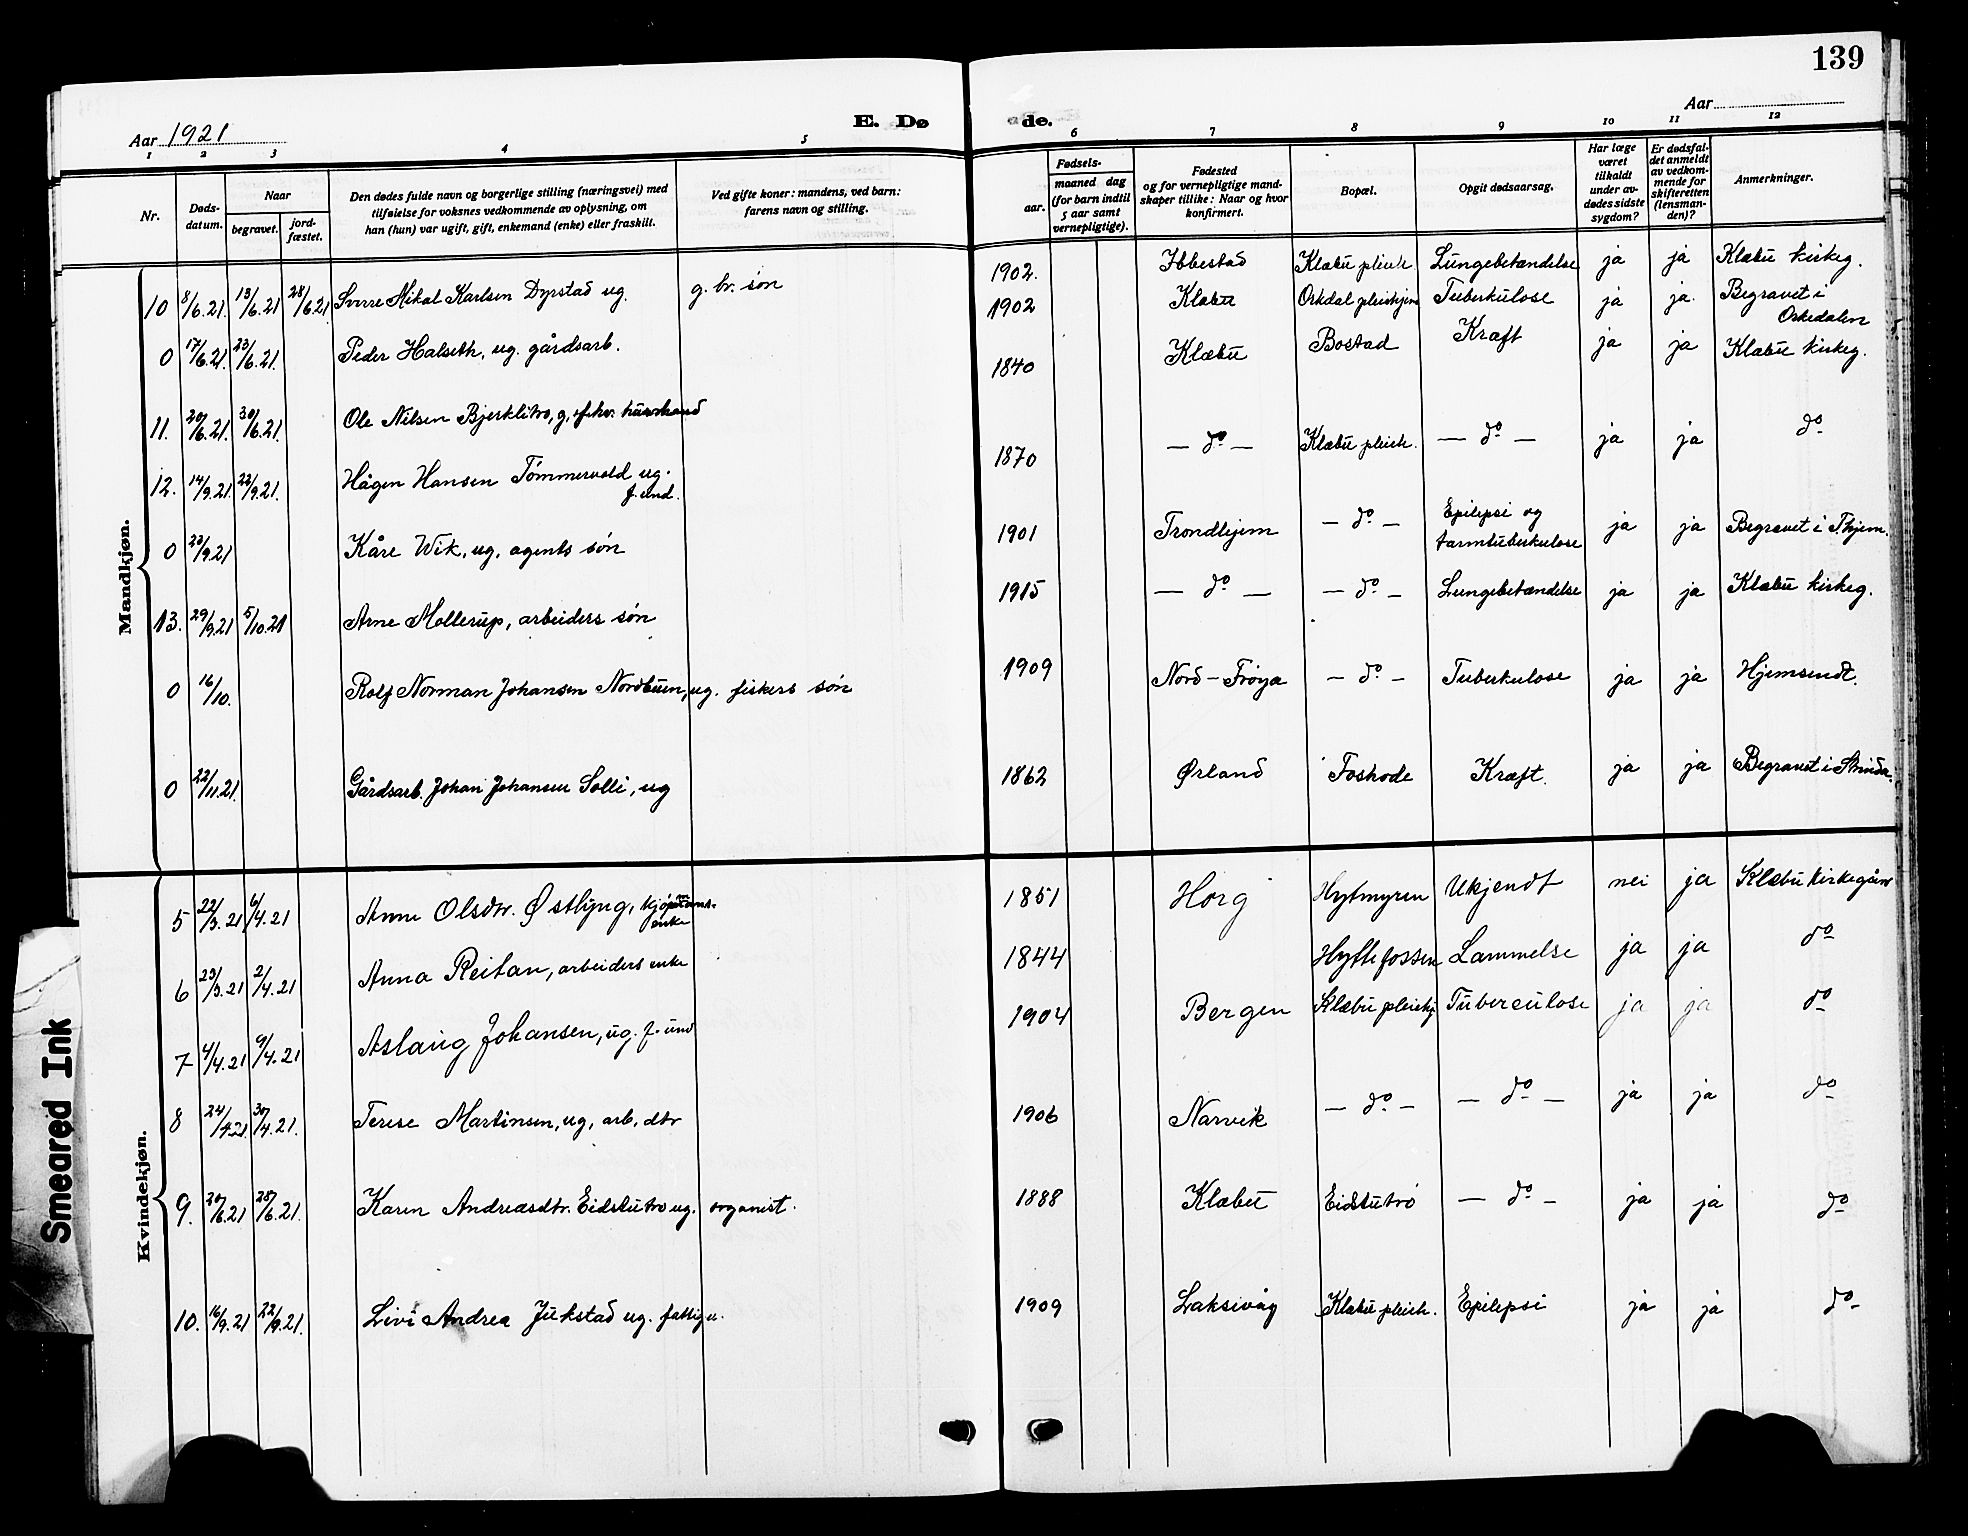 139
Aar 1921
E. Dø
de.
Aar
1 2 3 4 5 6 7 8 9 10 11 12
Nr.
Døds-
datum.
Naar
begravet.
jord-
fæstet.
Den dødes fulde navn og borgerlige stilling (næringsvei) med
tilføielse for voksnes vedkommende av oplysning, om
han (hun) var ugift, gift, enkemand (enke) eller fraskilt.
Ved gifte koner: mandens, ved barn:
farens navn og stilling.
Fødsels-
aar.
maaned dag
(for barn indtil
5 aar samt
vernepligtige).
Fødested
og for vernepligtige mand-
skaper tillike: Naar og hvor
konfirmert.
Bopæl.
Opgit dødsaarsag.
Har læge
været
tilkaldt
under av-
dødes sidste
sygdom?
Er dødsfal-
det anmeldt
av vedkom-
mende for
skifteretten
(lensman-
den)?
Anmerkninger.
Mandkjøn.
10 8/6.21. 13/6.21 28/6.21 Sverre Mikal Karlsen Dyrstad ug. g. br. søn 1902. Ibbestad Klæbu pleieh. Lungebetændelse ja ja Klæbu kirkeg.
0 17/6.21. 23/6.21. Peder Halseth, ug. gårdsarb. 1902 Klæbu Orkdal pleiehjem Tuberkulose ja ja. Begravet i
Orkedalen
11. 20/6.21. 30/6.21. Ole Nilsen Bjerklitrø, g, fhv. husmand 1840 Klæbu Bostad Kræft ja ja Klæbu kirkeg.
12. 14/9.21. 22/9.21. Hågen Hansen Tømmervold ug.
f. und. 1870 — do — Klæbu pleieh. — do — ja ja do
0 23/9.21 Kåre Wik, ug, agents søn 1901 Trondhjem — do — Epilepsi og
tarmtuberkulose ja ja Begravet i Thjem.
13. 29/9.21 5/10.21 Arne Mollerup, arbeiders søn 1915 — do — — do — Lungebetændelse ja ja Klæbu kirkeg.
0 16/10. Rolf Norman Johansen Nordbuen, ug. fiskers søn 1909 Nord-Frøya — do — Tuberkulose ja ja Hjemsendt.
0 22/11.21. Gårdsarb. Johan Johansen Solli, ug 1862 Ørland Foskode Kræft. ja ja Begravet i Strinda.
Kvindekjøn.
5 22/3.21 6/4.21 Anne Olsdtr. Østlyng,
enke 1851 Horg Hytmyren Ukjendt nei ja Klæbu kirkegård
6 23/3.21 2/4.21 Anna Reitan, arbeiders enke 1844 Hyttefossen Lammelse ja ja do
7 4/4.21 9/4.21 Aslaug Johansen, ug. f. und 1904 Bergen Klæbu pleiehj Tuberculose ja ja do
8 24/4.21 30/4.21. Terese Martinsen, ug, arb. dtr 1906 Narvik — do — — do — ja ja do
9. 20/6.21 28/6.21. Karen Andreasdtr. Eidstutrø ug. organist. 1888 Klæbu Eidstutrø — do — ja ja do
10. 16/9.21 22/9.21. Livi Andrea Jukstad ug. fattigu. 1909 Laksivåg Klæbu pleieh. Epilepsi ja ja do
Smeared Ink